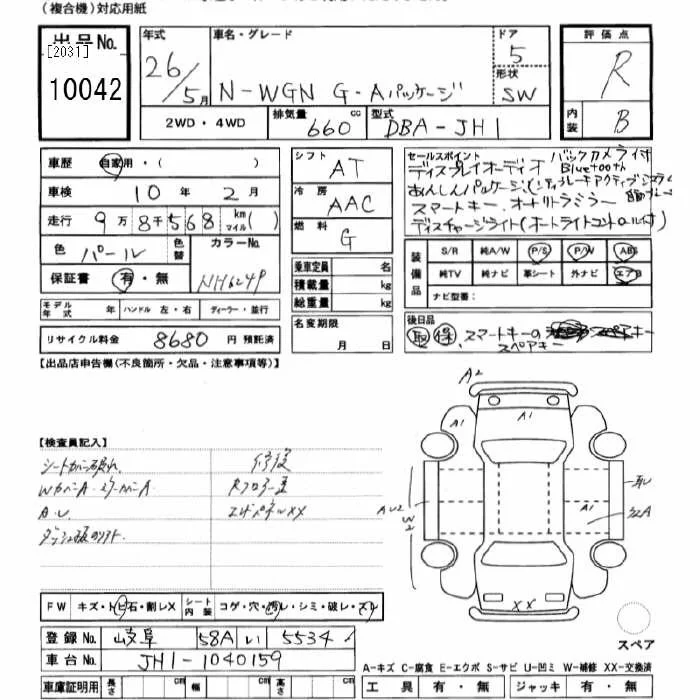 (複合機)対応用紙
出品No. [2031] 10042
年式 26/5月
車名・グレード N-WGN G・Aパッケージ
ドア 5
形状 SW
2WD・4WD
排気量 660 cc
型式 DBA-JH1
評価点 R
内装 B
車歴 自家用・( )
車検 10年2月
走行 9万8千568 km マイル( )
色 パール 色替
カラーNo. NH624P
保証書 有・無
モデル年式 年 ハンドル 左・右 ディーラー・並行
リサイクル料金 8680 円 預託済
シフト AT
冷房 AAC
燃料 G
乗車定員 名
積載量 kg
総重量 kg
名変期限 月 日
セールスポイント バックカメラ付
ディスプレイオーディオ Bluetooth
あんしんパッケージ(シティブレーキアクティブシステム
スマートキー、オートリトラミラー
ディスチャージライト(オートライトコントロール付)
装備品 S/R 純A/W P/S P/W ABS
純TV 純ナビ 革シート 外ナビ エアB
ナビ型番:
後日品
取 保 、スマートキーの スペアキー
スペアキー
【出品店申告欄(不良箇所・欠品・注意事項等)】
【検査員記入】
シートカバー破れ 修復
WカバーA・ステーカバーA
A・U エンドパネルXX
A2
A1
A1
A1
A U2
W2
XX
スペア
FW キズ・トビ石・割レX シート内装 コゲ・穴・汚レ・シミ・破レ・スレ
登録No. 岐阜 58A い 5534
車台No. JH1-1040159
車庫証明用 長さ cm 幅 cm 高さ cm
A-キズ C-腐食 E-エクボ S-サビ U-凹ミ W-補修 XX-交換済
工具 有・無 ジャッキ 有・無